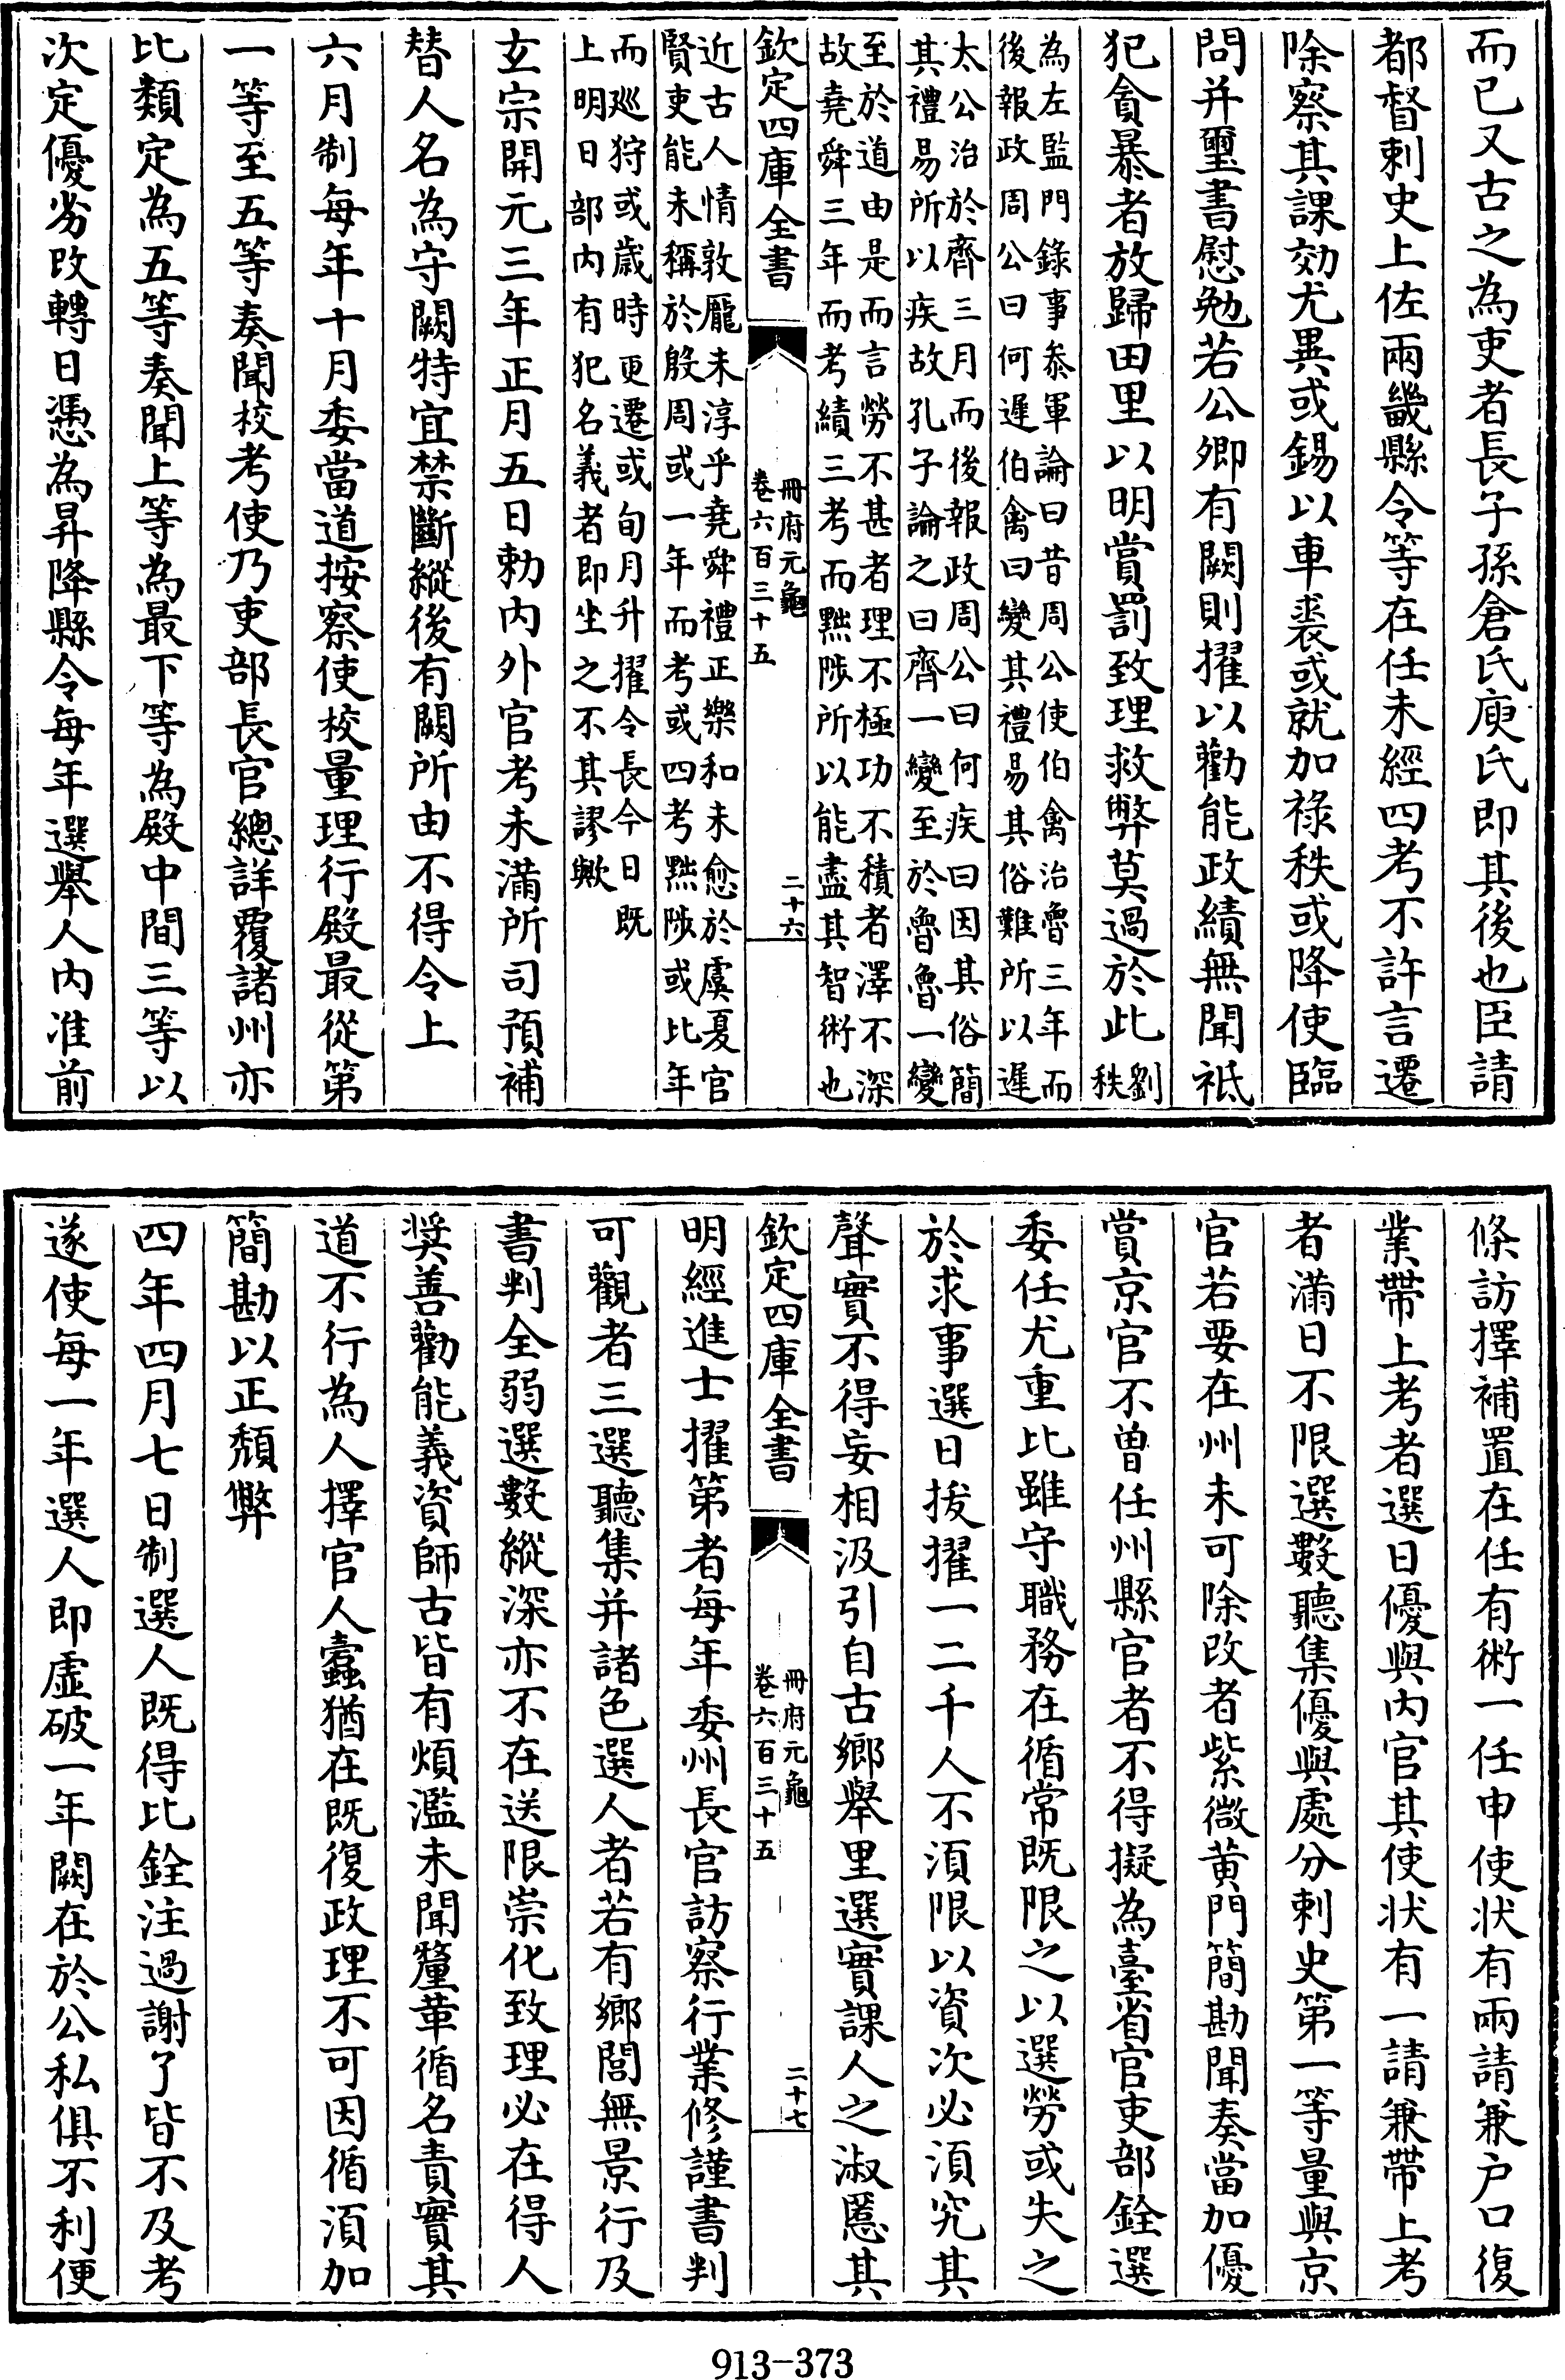 而已又古之為吏者長子孫倉氏庾氏即其後也臣請
都督刺史上佐兩畿縣令等在任未經四考不許言遷
除察其課効尤異或錫以車裘或就加祿秩或降使臨
問并璽書慰勉若公卿有闕則擢以勸能政績無聞祗
犯貪暴者放歸田里以明賞罰致理救弊莫過於此劉秩
為左監門錄事叅軍論曰昔周公使伯禽治魯三年而
後報政周公曰何遲伯禽曰變其禮易其俗難所以遲
太公治於齊三月而後報政周公曰何疾曰因其俗簡
其禮易所以疾故孔子論之曰齊一變至於魯魯一變
至於道由是而言勞不甚者理不極功不積者澤不深
故堯舜三年而考績三考而黜陟所以能盡其智術也
欽定四庫全書
冊府元龜
卷六百三十五
二十六
近古人情敦龐未淳乎堯舜禮正樂和未愈於虞夏官
賢吏能未稱於殷周或一年而考或四考黜陟或比年
而廵狩或歲時更遷或旬月升擢令長今日既
上明日部內有犯名義者即坐之不其謬歟
玄宗開元三年正月五日勅內外官考未滿所司預補
替人名為守闕特宜禁斷縱後有闕所由不得令上
六月制每年十月委當道按察使校量理行殿最從第
一等至五等奏聞校考使乃吏部長官總詳覆諸州亦
比類定為五等奏聞上等為最下等為殿中間三等以
次定優劣改轉日憑為昇降縣令每年選舉人內准前
條訪擇補置在任有術一任申使狀有兩請兼户口復
業帶上考者選日優與內官其使狀有一請兼帶上考
者滿日不限選數聽集優與處分刺史第一等量與京
官若要在州未可除改者紫微黃門簡勘聞奏當加優
賞京官不曾任州縣官者不得擬為臺省官吏部銓選
委任尤重比雖守職務在循常既限之以選勞或失之
於求事選日拔擢一二千人不須限以資次必須究其
聲實不得妄相汲引自古鄉舉里選實課人之淑慝其
欽定四庫全書
冊府元龜
卷六百三十五
二十七
明經進士擢第者每年委州長官訪察行業修謹書判
可觀者三選聽集并諸色選人者若有鄉閭無景行及
書判全弱選數縱深亦不在送限崇化致理必在得人
奬善勸能義資師古皆有煩濫未聞釐革循名責實其
道不行為人擇官人蠹猶在既復政理不可因循須加
簡勘以正頹弊
四年四月七日制選人既得比銓注過謝了皆不及考
遂使每一年選人即虛破一年闕在於公私俱不利便
913-373